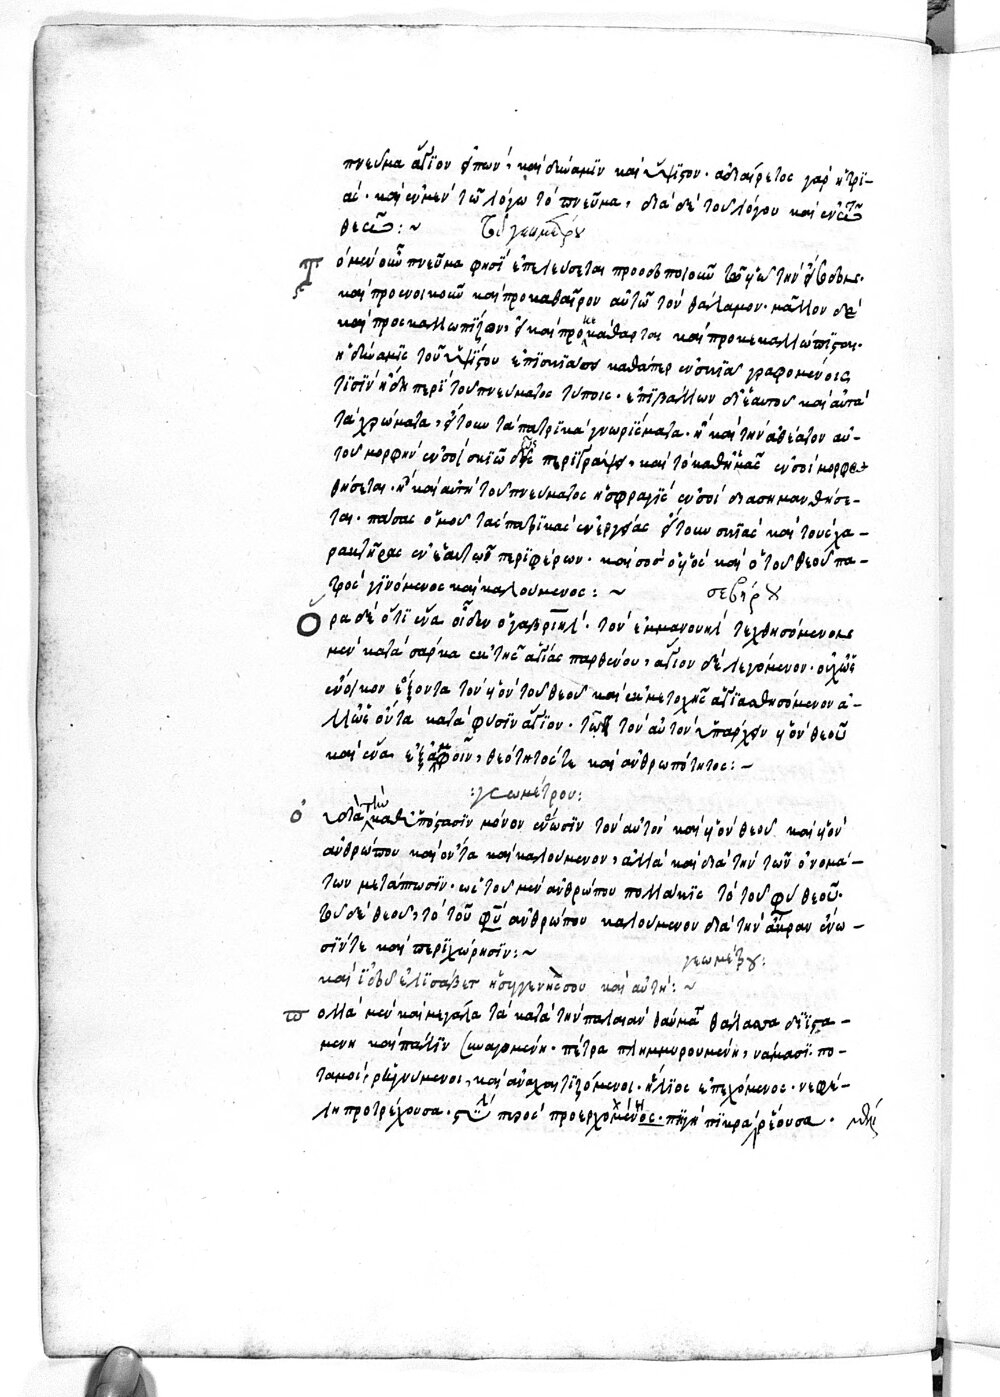 πνεῦμα ἅγιον εἰπὼν, καὶ δύναμιν καὶ ὕψιστον. ἀδιαίρετος γὰρ ἡ τρι-
ὰς. καὶ ἐν μὲν τῶ λόγω τὸ πνεῦμα, διὰ δὲ τοῦ λόγου καὶ ἐν
θεῶ:~ τοῦ γεωμέτρου
Τὸ μὲν οὖν πνεῦμα φησὶ ἐπελεύσεται προοδοποιοῦν τῶ υἱῶ τὴν εἴσοδον.
καὶ προενοικοῦν καὶ προκαθαῖρον αὐτῶ τὸν θάλαμον. μᾶλλον δὲ
καὶ προκαλλωπίζον, εἰ καὶ προκεκάθαρται καὶ προκεκαλλώπισται.
ἡ δύναμις τοῦ ὑψίστου ἐπισκιάσει καθάπερ ἐν σκιᾶ γραφομένοις
τισὶν ἤδη περὶ τοῦ πνεύματος τύποις. ἐπιβάλλων δι' ἑαυτοῦ καὶ αὐτὰ
τὰ χρώματα, ἤτοι τὰ πατρικὰ γνωρίσματα. ἢ καὶ τὴν ἀθέατον αὐ-
τοῦ μορφὴν ἐν σοὶ περιγράψει, καὶ τὸ καθ' ἡμᾶς ἐν σοὶ μορφω-
θήσεται. ἢ καὶ αὐτὴ τοῦ πνεύματος ἡ σφραγὶς ἐν σοὶ διασημανθήσε-
ται. πάσας ὁμοῦ τὰς πατρικὰς ἐνεργείας ἤτοι σκιὰς καὶ τοὺς χα-
ρακτῆρας ἐν ἑαυτῶ περιφέρων. καὶ σὸς ὁ υἱὸς καὶ ὁ τοῦ θεοῦ πα-
τρὸς γινόμενος καὶ καλούμενος:~ σεβήρου
Ὅρα δὲ ὅτι ἕνα οἶδεν ὁ γαβριὴλ. τὸν ἐμμανουὴλ τεχθησόμενον
μὲν κατὰ σάρκα ἐκ τῆς ἁγίας παρθένου, ἅγιον δὲ λεγόμενον. οὐχ ὡς
ἔνοικον ἔχοντα τὸν υἱὸν τοῦ θεοῦ καὶ ἐκ μετοχῆς ἁγιασθησόμενον ἀ-
λλ' ὡς ὄντα κατὰ φύσιν ἅγιον. τῶ τὸν αὐτὸν ὑπάρχειν υἱὸν θεοῦ
καὶ ἕνα ἐξ ἀμφοῖν, θεότητός τε καὶ ἀνθρωπότητος:~
:γεωμέτρου:
ὁ διὰ τὴν καθ' ὑπόστασιν μόνον ἕνωσιν τὸν αὐτὸν καὶ υἱὸν θεοῦ καὶ υἱὸν
ἀνθρώπου καὶ ὄντα καὶ καλούμενον, ἀλλὰ καὶ διὰ τὴν τῶν ὀνομά-
των μετάπτωσιν. ὡς τοῦ μὲν ἀνθρώπου πολλάκις τὸ τοῦ θεοῦ.
τοῦ δὲ θεοῦ, τὸ τοῦ ἀνθρώπου καλουμένου διὰ τὴν ἄκραν ἕνω-
σίν τε καὶ περιχώρησιν:~ γεωμέτρου:
καὶ ἰδοὺ ἐλισάβετ ἡ συγγενής σου καὶ αὐτή:~
πολλὰ μὲν καὶ μεγάλα τὰ κατὰ τὴν παλαιὰν θαύματα θάλασσα διϊστα-
μένη καὶ πάλιν συναγομένη. πέτρα πλημμυρουμένη, νάμασι πο-
ταμοὶ ῥηγνύμενοι, καὶ ἀναχαιτιζόμενοι. ἥλιος ἐπεχόμενος. νεφέ-
λη προτρέχουσα. πυρὸς προερχόμενος. πηγὴ πικρὰ ῥέουσα.